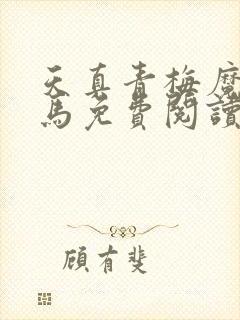 天真青梅魔
馬免費閱讀
顧有斐